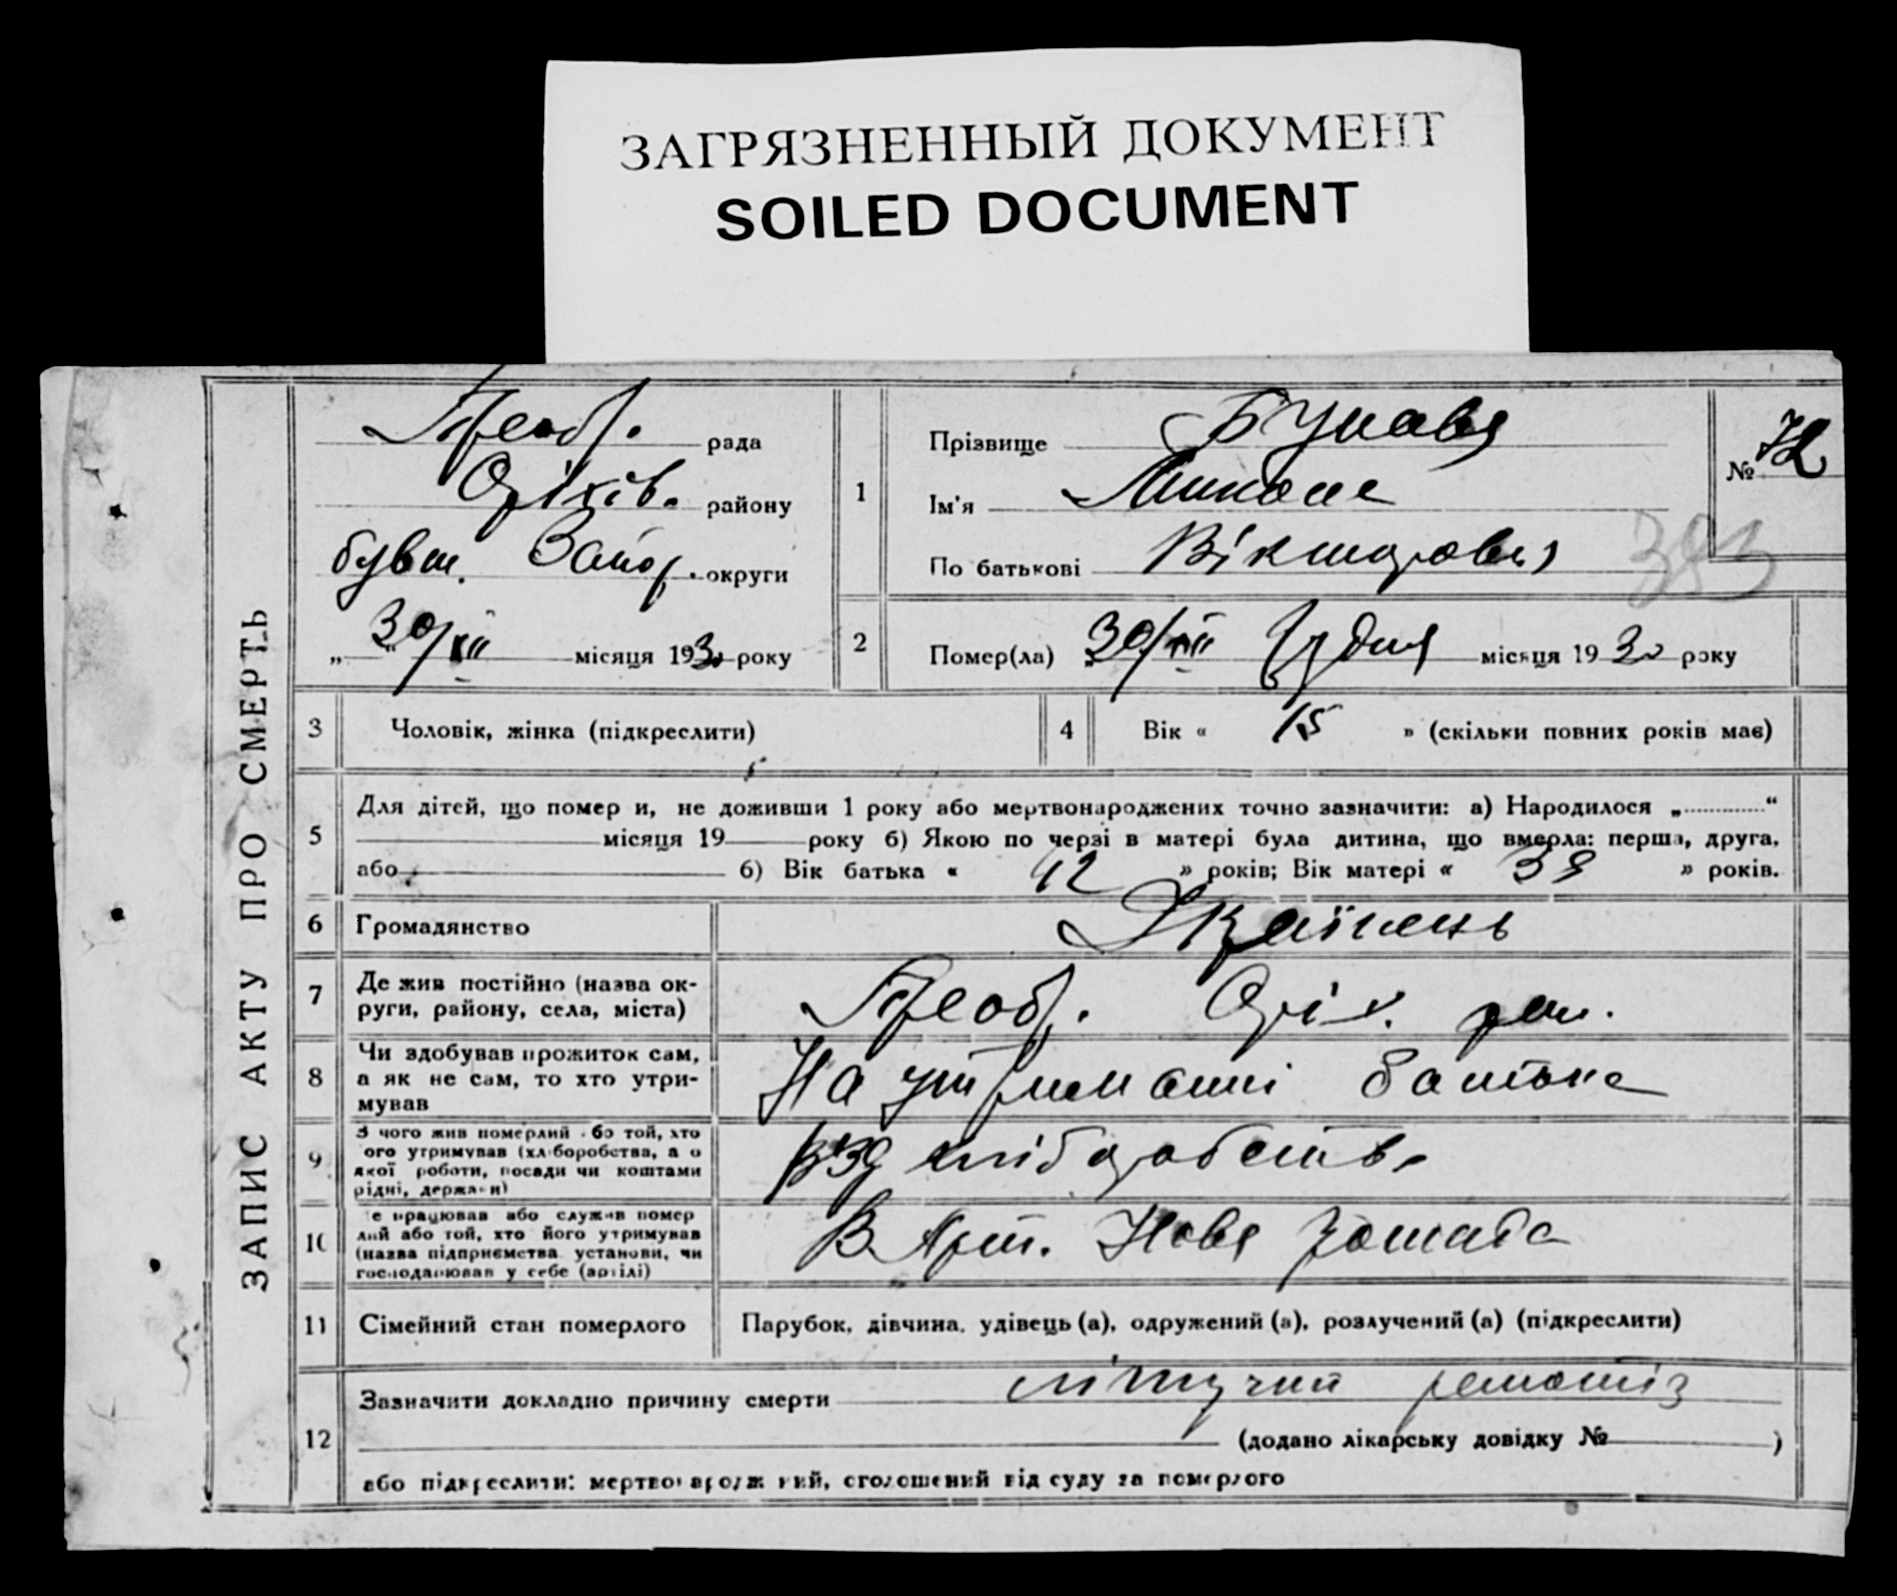 ЗАГРЯЗНЕННЫЙ ДОКУМЕНТ
SOILED DOCUMENT
ЗАПИС АКТУ ПРО СМЕРТЬ
Преобр. рада
Оріхів. району
бувш. Запор. округи
„30/XII" місяця 1930 року
1
Прізвище
Ім'я Микола
По батькові Вікторович
№ 72
383
2
Помер(ла) 30/XII Грудня місяця 1930 року
3 Чоловік, жінка (підкреслити)
4 Вік « 15 » (скільки повних років має)
5 Для дітей, що померли, не доживши 1 року або мертвонароджених точно зазначити: а) Народилося „ “
місяця 19 року б) Якою по черзі в матері була дитина, що вмерла: перша, друга,
або б) Вік батька « 42 » років; Вік матері « 38 » років.
6 Громадянство Українець
7 Де жив постійно (назва ок-
руги, району, села, міста) Преобр. Оріх. рай.
8 Чи здобував прожиток сам,
а як не сам, то хто утри-
мував На утриманні батька
9 З чого жив померлий або той, хто
ого утримував (хліборобства, або
якої роботи, посади чи коштами
рідні, держави) Від хліборобства
10 е працював або служив помер
лий або той, хто його утримував
(назва підприємства установи, чи
господарював у себе (артілі) В Арт. Нова громада
11 Сімейний стан померлого Парубок, дівчина, удівець (а), одружений (а), розлучений (а) (підкреслити)
12 Зазначити докладно причину смерти літучий ревматіз
(додано лікарську довідку № )
або підкреслити: мертвонароджений, оголошений від суду за померлого